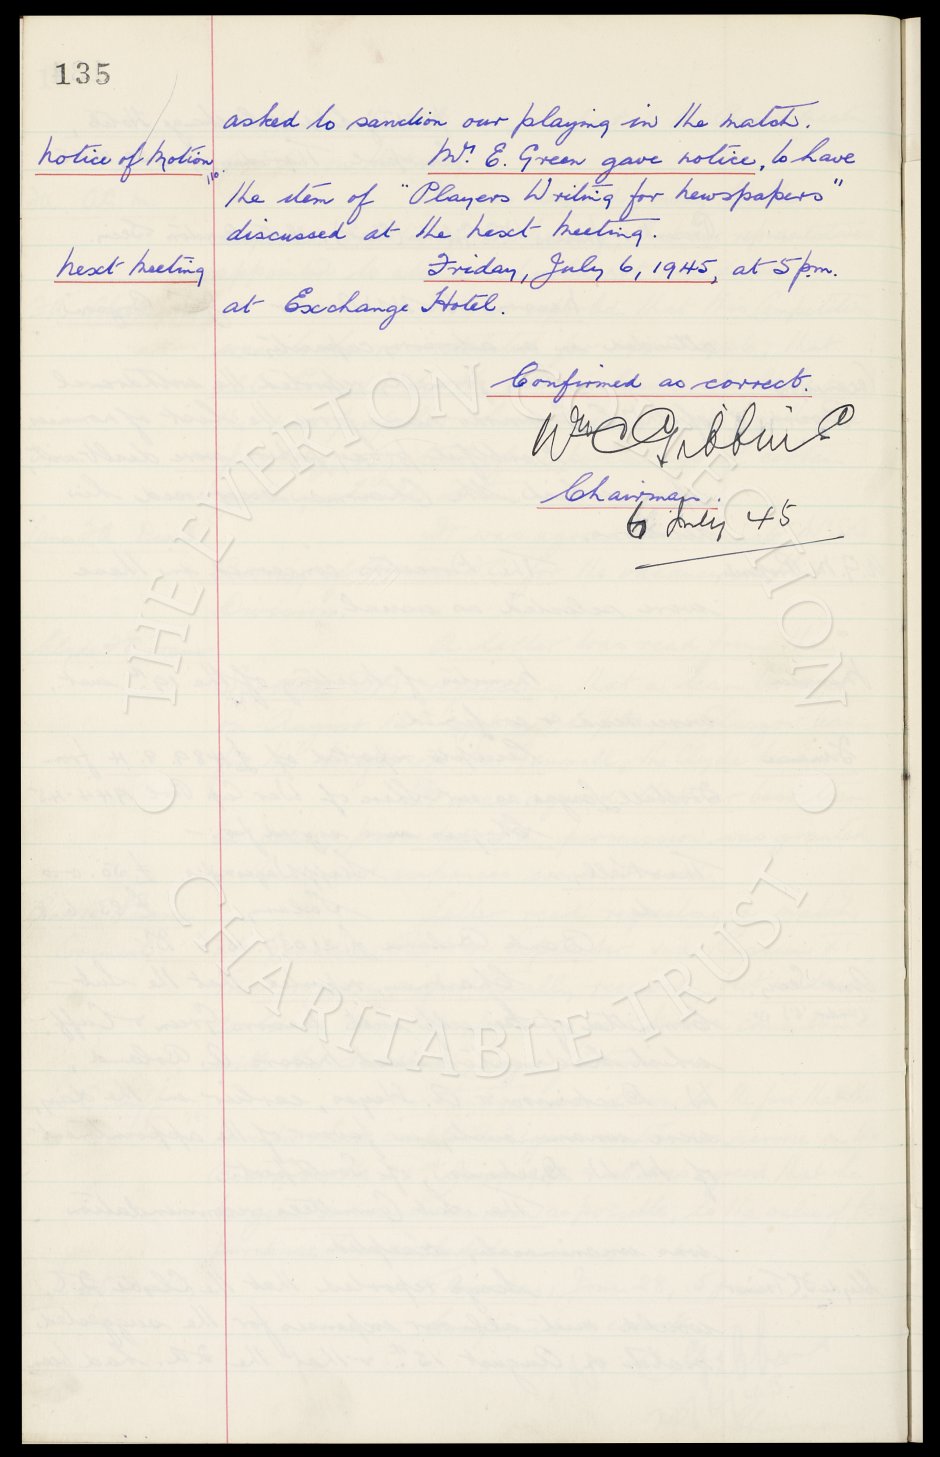 135
asked to sanction our playing in the match.
Notice of Motion Mr. E. Green gave notice, to have
the item of "Players Writing for newspapers"
discussed at the next meeting.
Next Meeting Friday, July 6, 1945, at 5 p.m.
at Exchange Hotel.
Confirmed as correct.
Wm C Gibbins
Chairman.
6 July 45
THE EVERTON COLLECTION
CHARITABLE TRUST